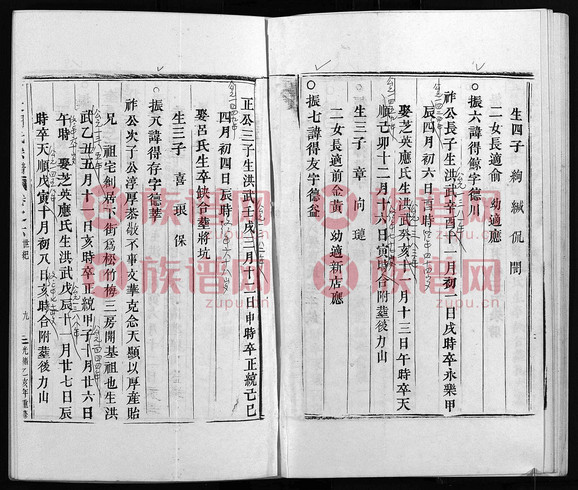 生四子 絢緘侃誾
二女長適俞 幼適應
○振六諱得鯨字德川
祚公長子生洪武辛酉十 月初一日戌時卒永樂甲
辰四月初六日酉時
娶芝英應氏生洪武癸亥十 月十三日午時卒天
順己卯十二月十六日寅時合附塟後力山
生三子 章向璉
二女長適前金黄 幼適新店應
○振七諱得友字德益
正公三子生洪武壬戌三月十八日申時卒正統己巳
四月初四日辰時
娶呂氏生卒缺合塟將坑
生三子 喜 琅 保
○振八諱得存字德華
祚公次子公淳厚恭敬不事文華克念天顯以厚産貽
兄 祖宅創居下街爲松竹梅三房開基祖也生洪
武乙丑五月十一日亥時卒正統甲子十月廿六日
午時 娶芝英應氏生洪武戊辰十 月廿七日辰
時卒天順戊寅十月初八日亥時合附塟後力山
世紀
九
光緒乙亥年重修
族谱网
www.zupu.cn
族谱网
www.zupu.cn